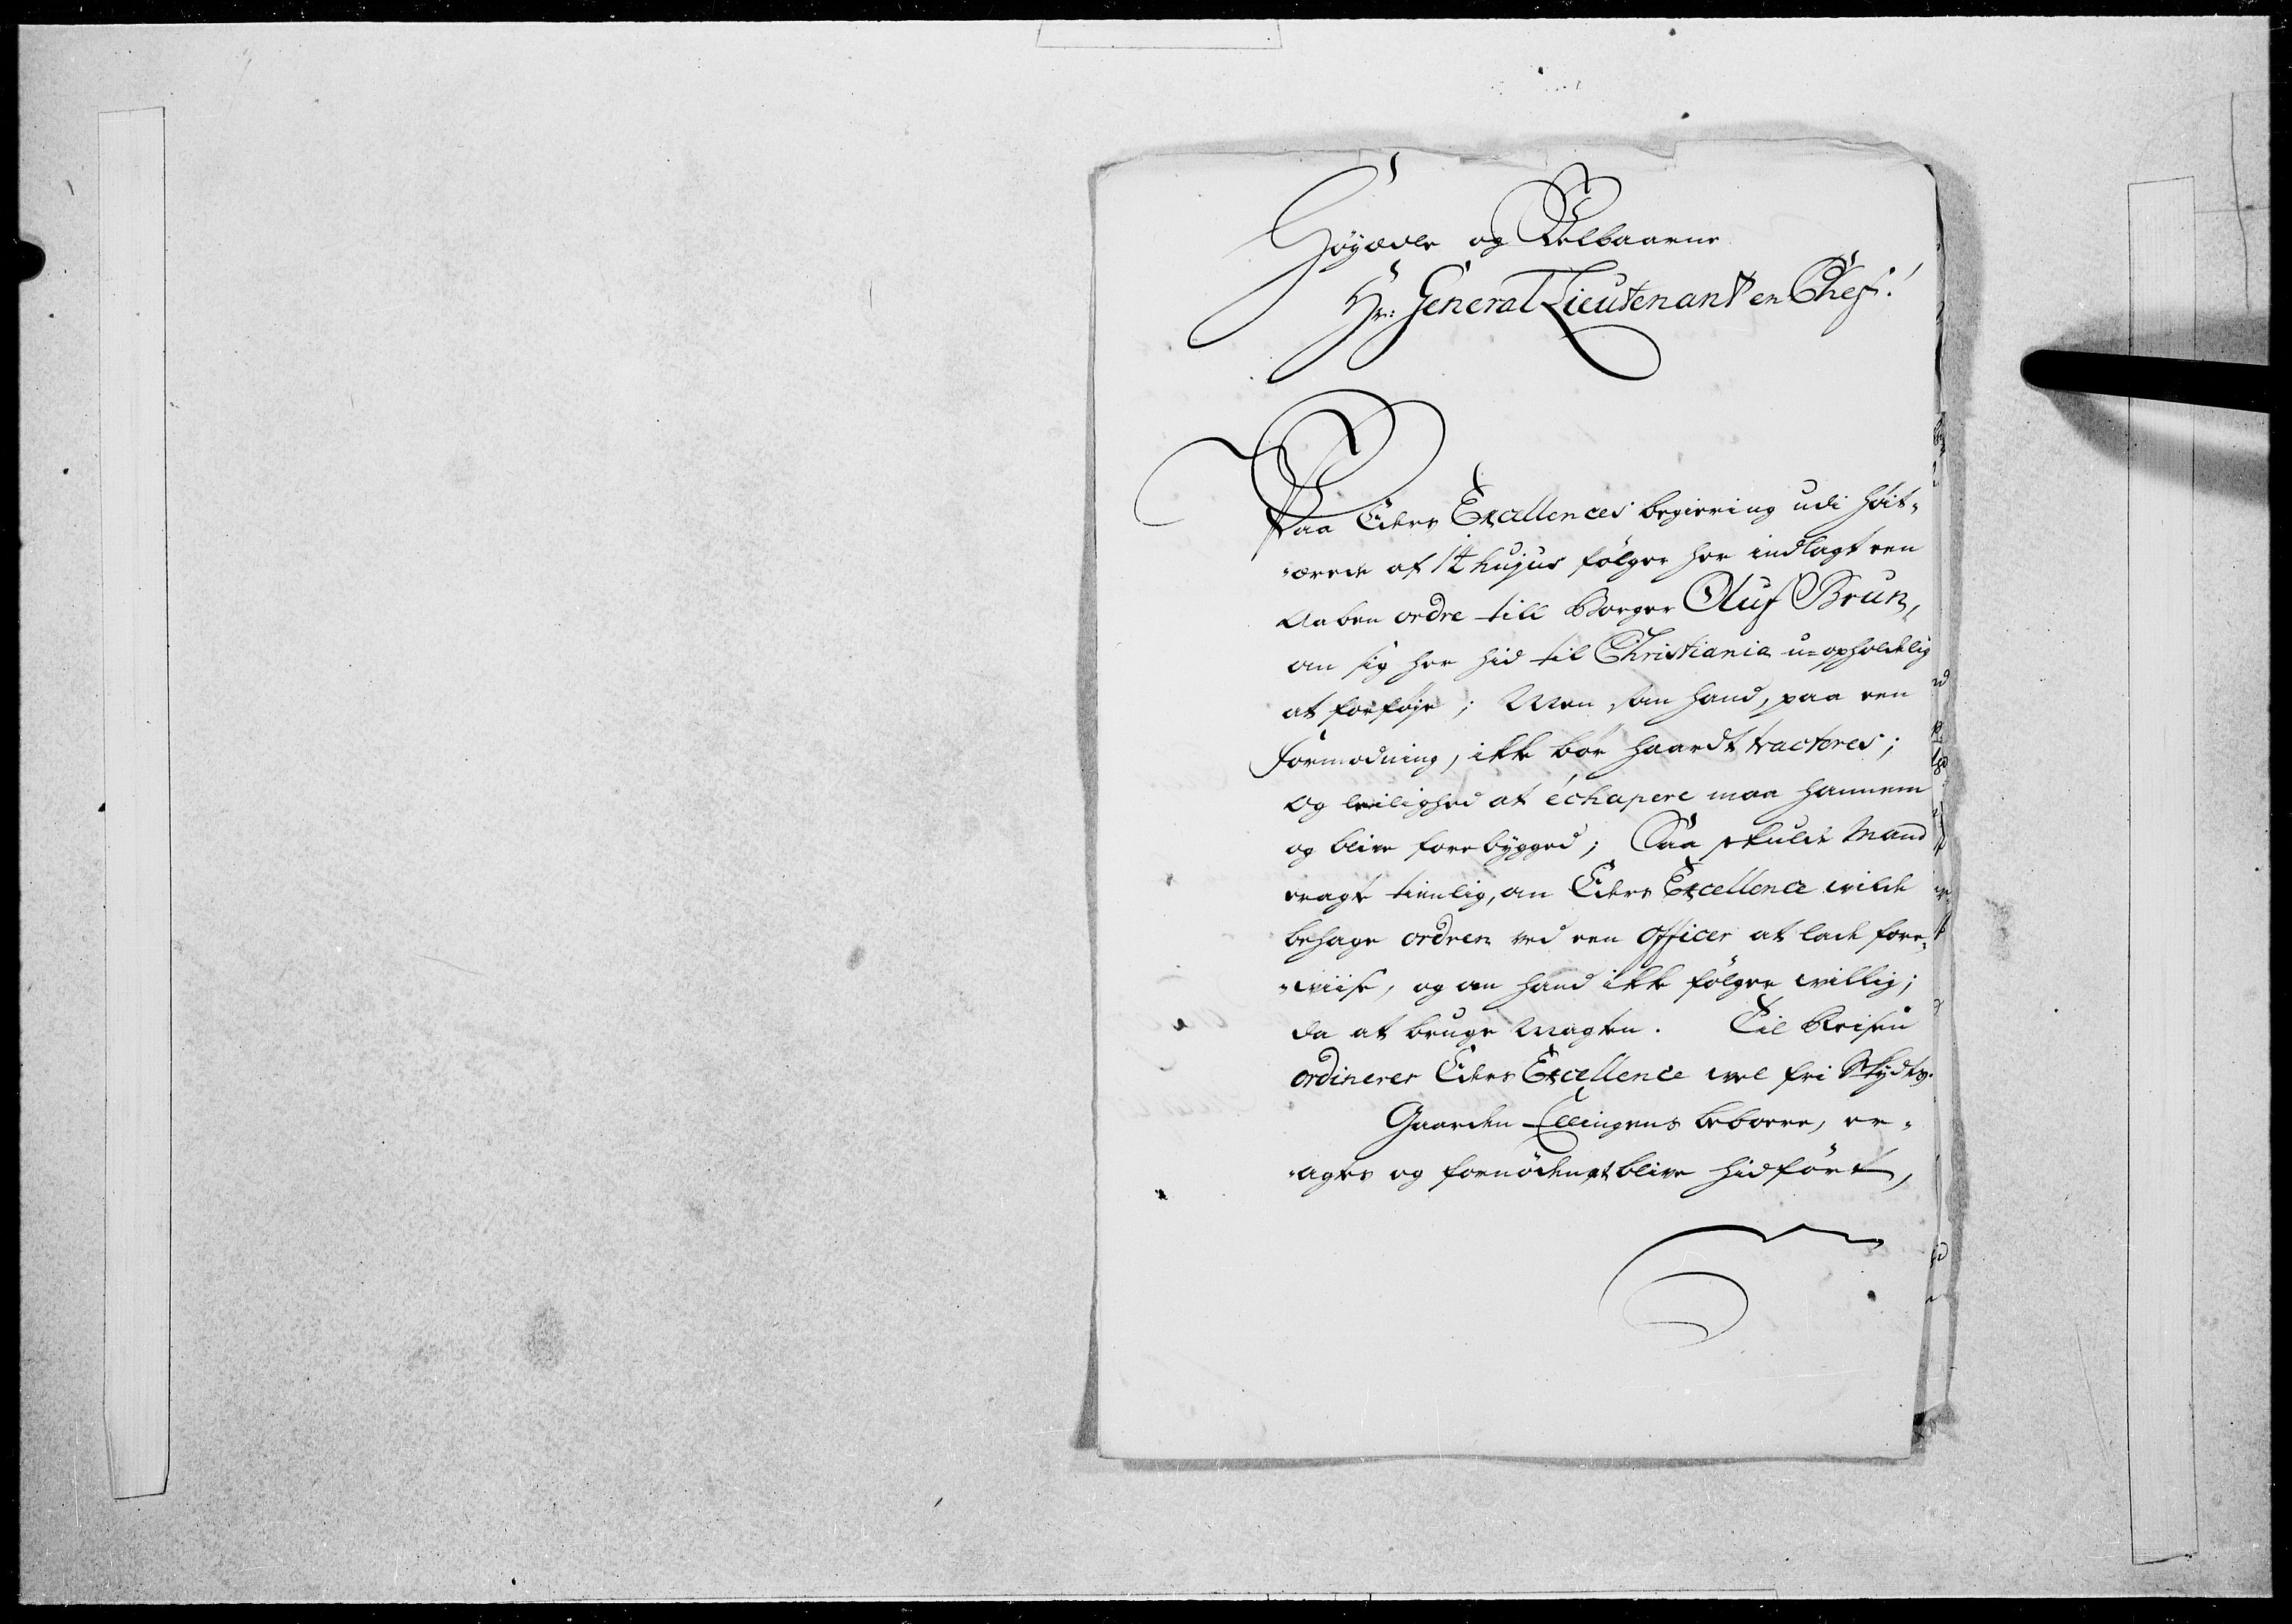 Höyædle og Velbaarne
Hr: General Lieutenant en Chef!
Paa Eders Excellences begiering udi höit-
-ærede af 14 hujus fölger her indlagt een
Aaben ordre till Borger Oluf Brun,
om sig her hid til Christiania u-opholdelig
at forföje; Men som hand, paa een
formodning, ikke bör haardt tracteres;
Og leilighed at échapere maa hannem
og blive forebygged; Saa skulde Mand
eragte tienlig, om Eders Excellence vilde
behage ordren ved een Officer at lade fore-
-viise, og om hand ikke fölger villig;
da at bruge Magten. Til Reisen
ordinerer Eders Excellence vel fri Skyds.
Gaarden Ellingens beboere, er-
-agtes og fornöden at blive hidfört,